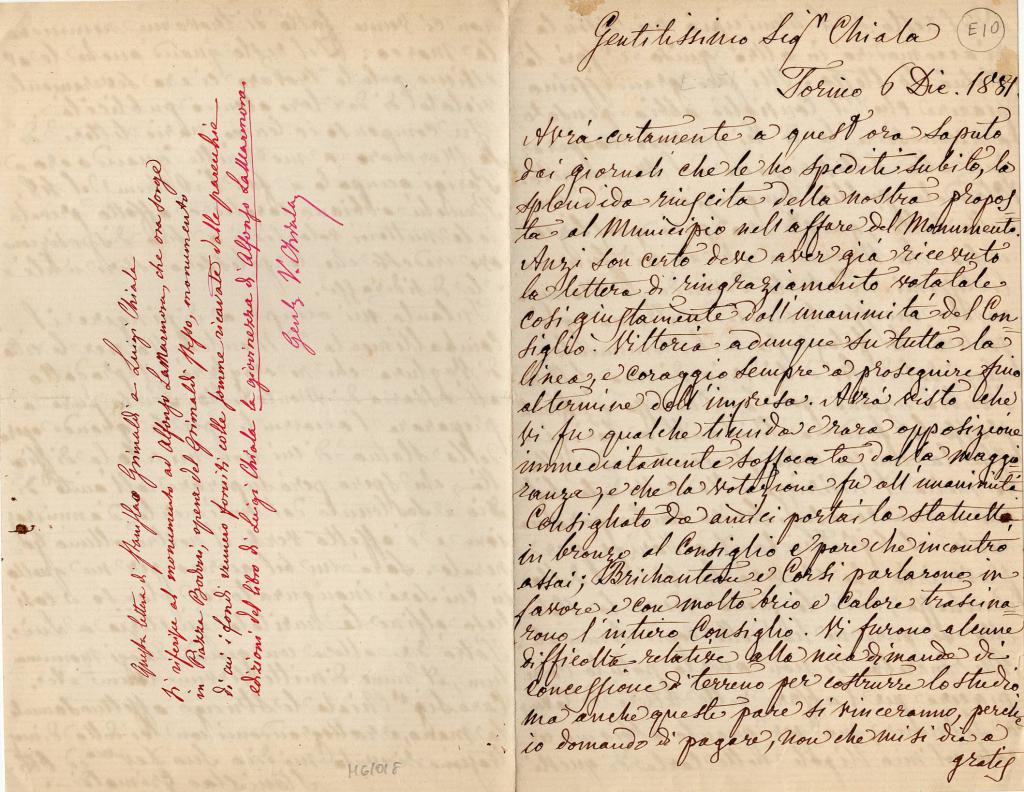 Questa lettera di Stanislao Grimaldi a Luigi Chiala
si riferisce al monumento ad Alfonso LaMarmora, che ora sorge
in Piazza Bodoni, opera del Grimaldi stesso, monumento
di cui i fondi vennero forniti colle somme ricavate dalle parecchie
edizioni del libro di Luigi Chiala la giovinezza di Alfonso LaMarmora.
V. Chiala
M61018
E10
Gentilissimo Sigr Chiala
Torino 6 Dic. 1881
Avrá certamente a quest'ora saputo
dai giornali che le ho spediti subito, la
splendida riuscita della nostra propos
ta al Municipio nell'affare del Monumento.
Anzi son certo deve aver giá ricevuto
la lettera di ringraziamento votatale
cosi giustamente dall'unanimitá del Con
siglio. Vittoria adunque su tutta la
linea, e coraggio sempre a proseguire fino
al termine dell'impresa. Avrá visto che
vi fu qualche timida e rara opposizione
immediatamente soffocata dalla maggio
ranza, e che la votazione fu all'unanimitá
Consigliato da amici portai la statuetta
in bronzo al Consiglio e pare che incontró
assai; Brichanteau e Corsi parlarono in
favore e con molto brio e calore trascina
rono l'intiero Consiglio. Vi furono alcune
difficoltá relative alla mia dimanda di
concessione di terreno per costrurre lo studio
ma anche queste pare si vinceranno, perchè
io domando di pagare, non che mi si dia a
gratis